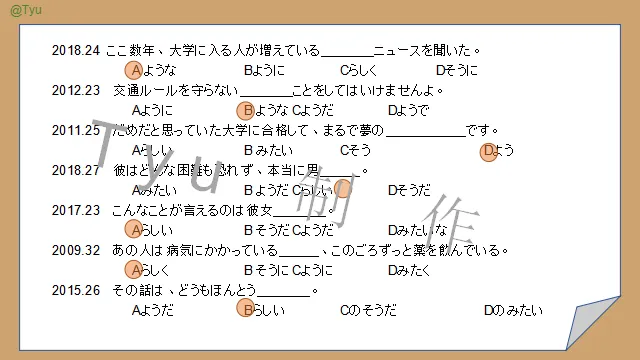 @Tyu
2018.24 ここ数年、大学に入る人が増えている________ニュースを聞いた。
Aような Bように Cらしく Dそうに
2012.23 交通ルールを守らない________ことをしてはいけませんよ。
Aように Bような Cようだ Dようで
2011.25 だめだと思っていた大学に合格して、まるで夢の____________です。
Aらしい B みたい Cそう Dよう
2018.27 彼はどんな困難も恐れず、本当に男______。
Aみたい B ようだ Cらしい Dそうだ
2017.23 こんなことが言えるのは彼女________。
Aらしい B そうだ Cようだ Dみたいな
2009.32 あの人は病気にかかっている______、このごろずっと薬を飲んでいる。
Aらしく B そうに Cように Dみたく
2015.26 その話は、どうもほんとう________。
Aようだ Bらしい Cのそうだ Dのみたい
Tyu 制作